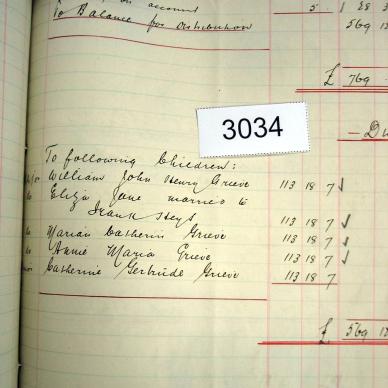 on account 5. 1 28 3
To Balance for distribution 569
£ 769
3034
To following Children:
William John Henry Grieve 113 18 7
Eliza Jane married to
Frank Heys 113 18 7
Marian Catherin Grieve 113 18 7
Annie Maria Grieve 113 18 7
Catherine Gertrude Grieve 113 18 7
£ 569 12